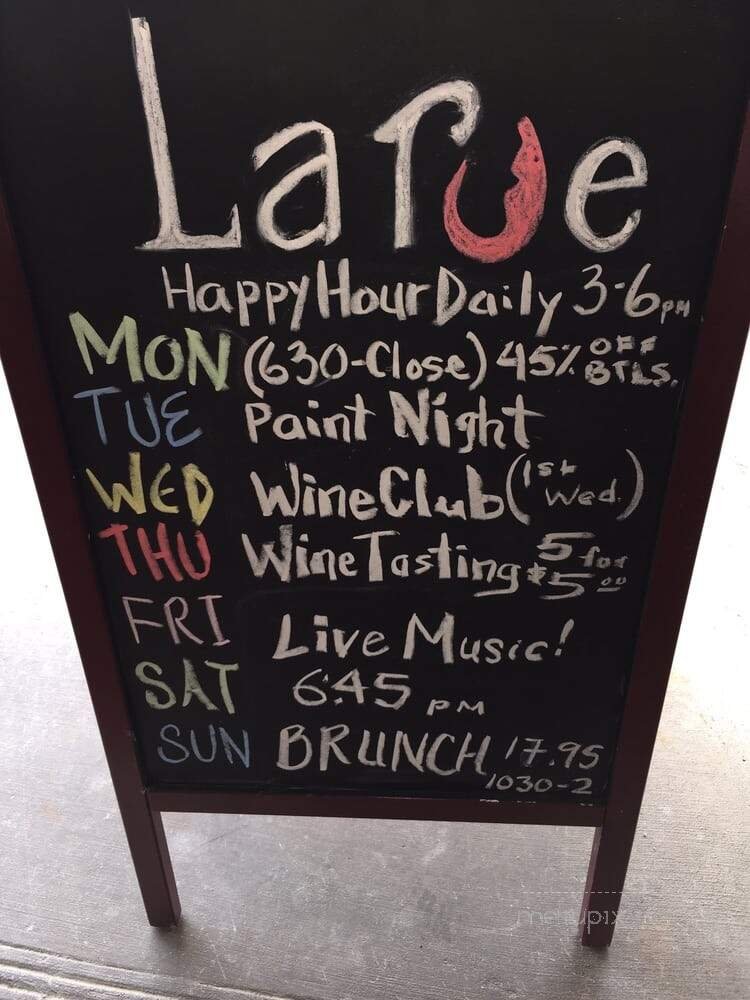 Larue
Happy Hour Daily 3-6 PM
MON (630-Close) 45% OFF BTLS.
TUE Paint Night
WED Wine Club (1st Wed.)
THU Wine Tasting 5 for $5.00
FRI Live Music!
SAT 6:45 PM
SUN BRUNCH 17.95
1030-2